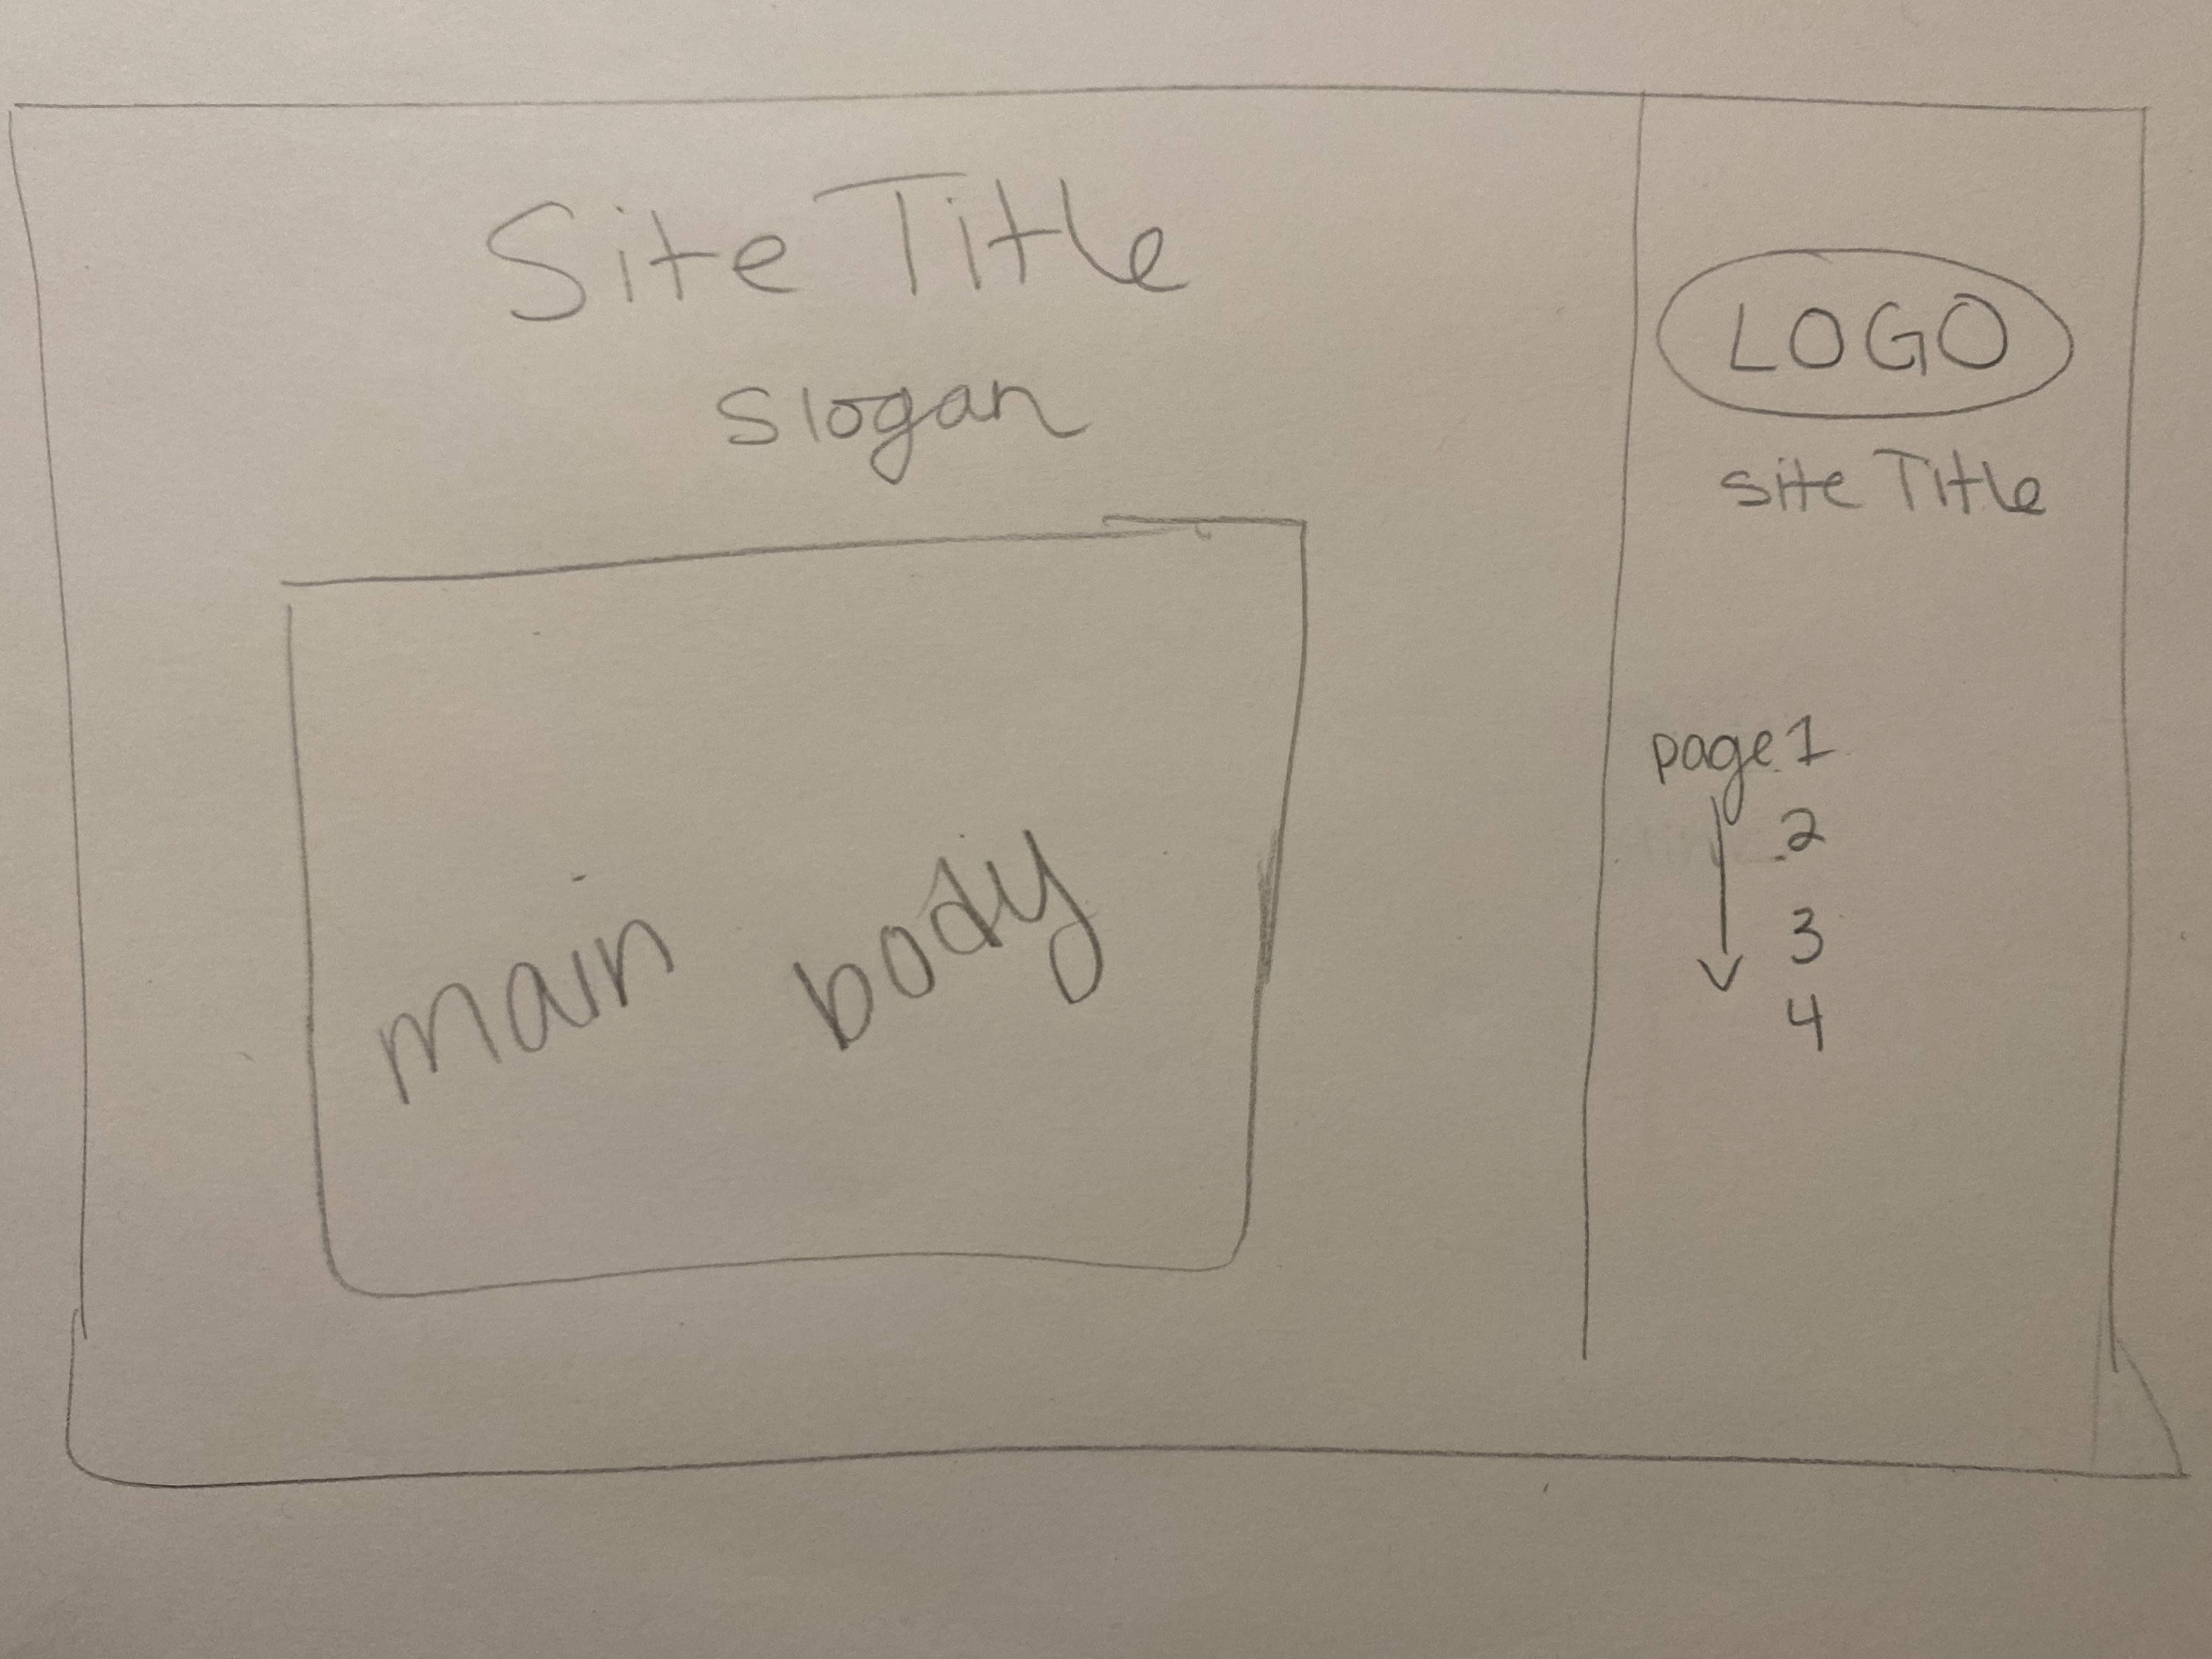 Site Title
slogan
main body
LOGO
site Title
page 1
2
3
4